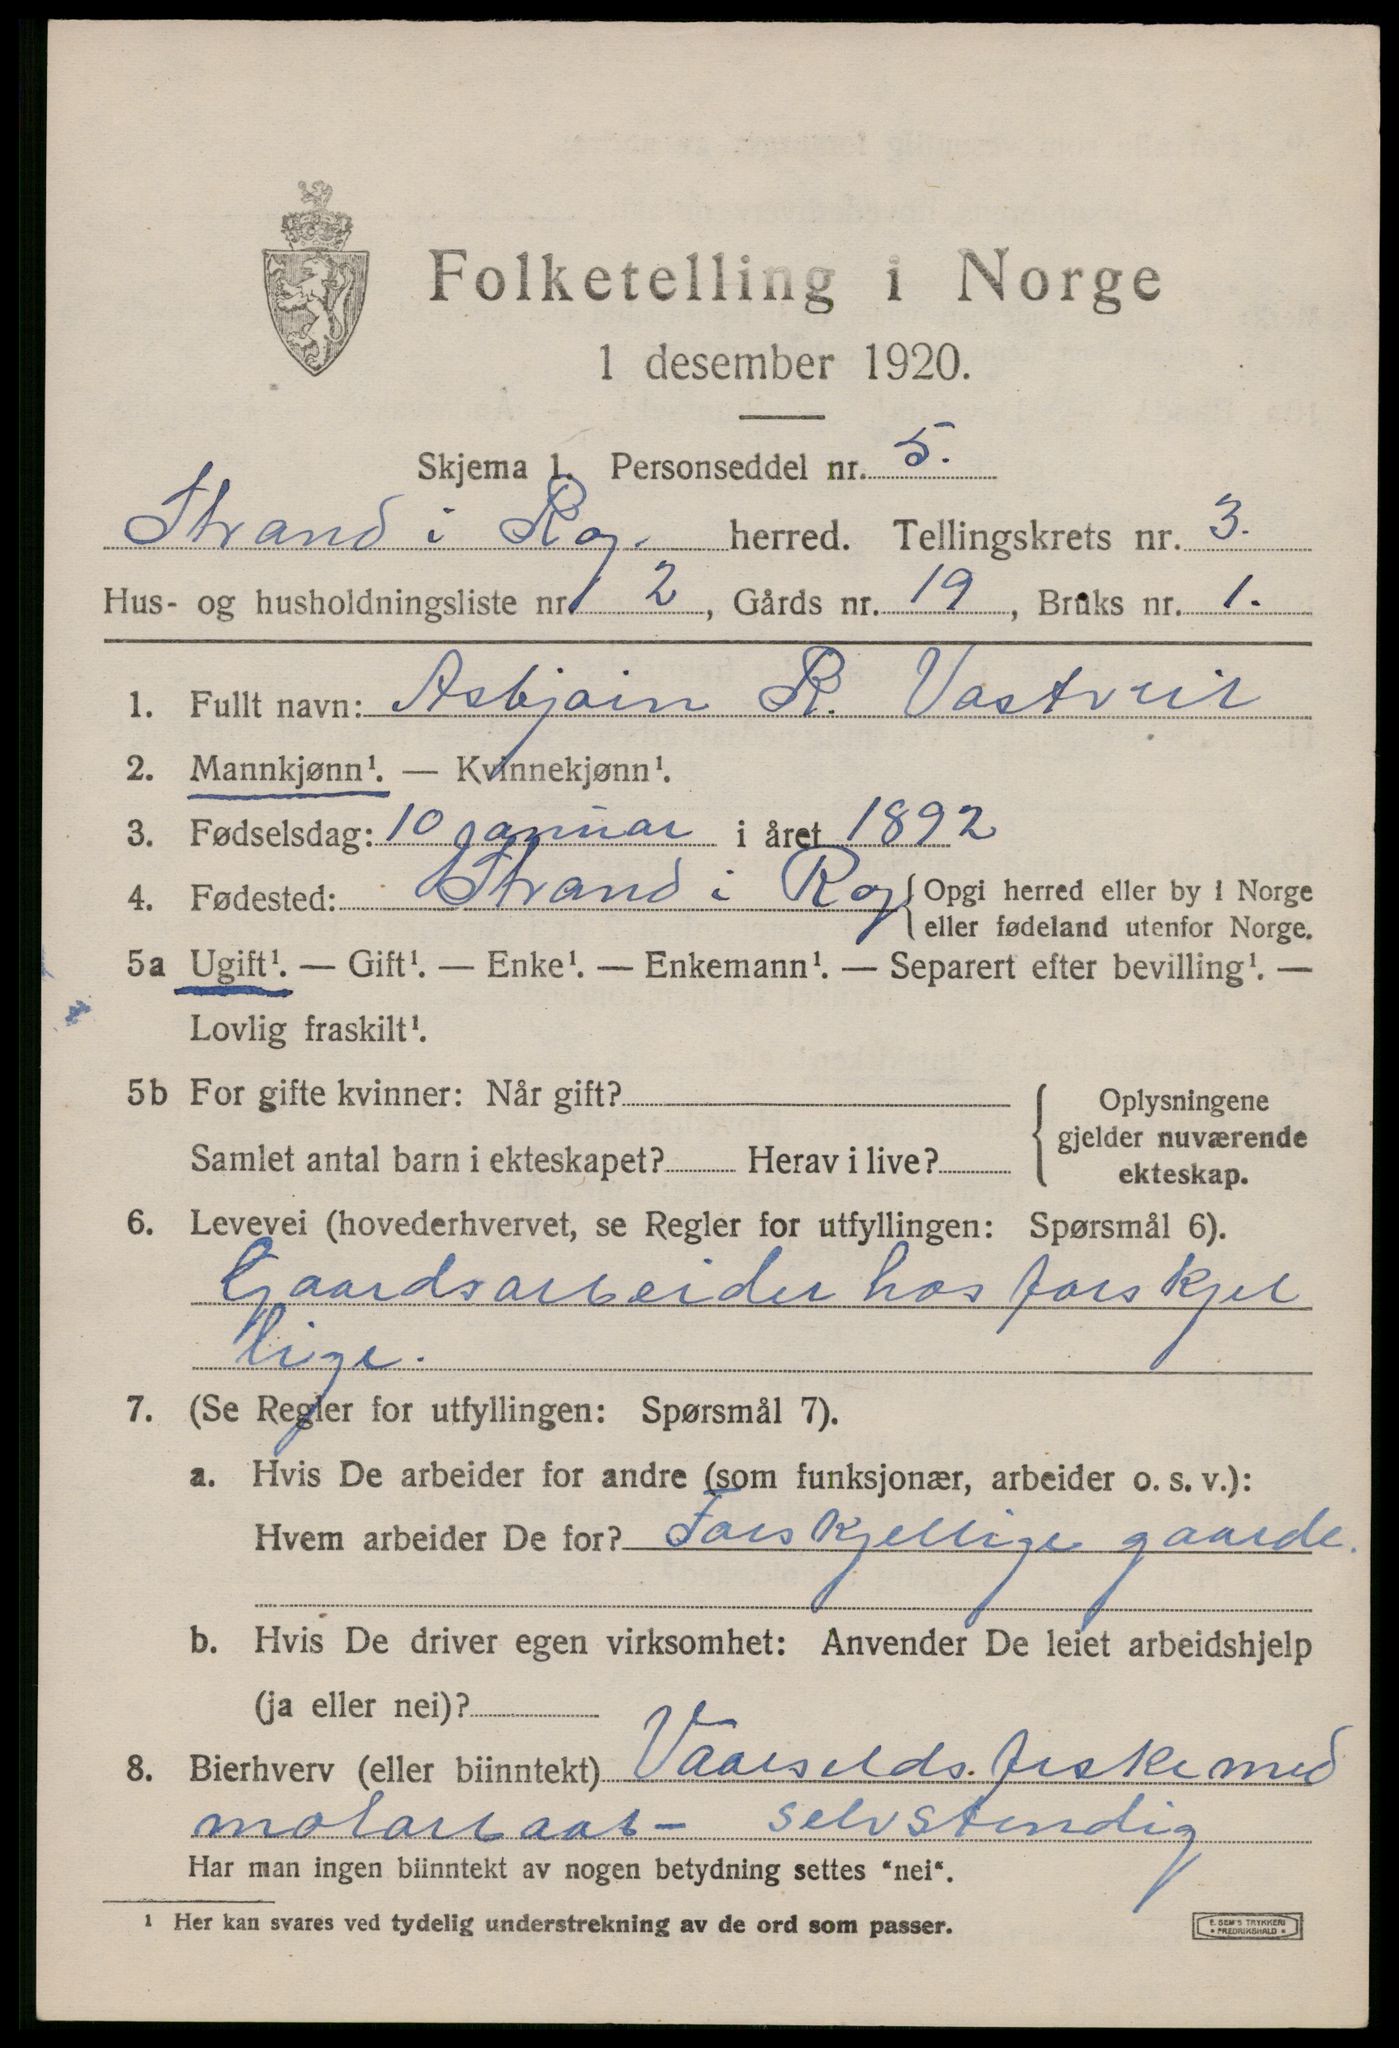 Folketelling i Norge
1 desember 1920.
Skjema 1. Personseddel nr. 5.
Strand i Rog. herred. Tellingskrets nr. 3.
Hus- og husholdningsliste nr. 2, Gårds nr. 19, Bruks nr. 1.
1. Fullt navn: Asbjøin R. Vastveit
2. Mannkjønn¹. — Kvinnekjønn¹.
3. Fødselsdag: 10 januar i året 1892
4. Fødested: Strand i Rog { Opgi herred eller by i Norge
eller fødeland utenfor Norge.
5a Ugift¹. — Gift¹. — Enke¹. — Enkemann¹. — Separert efter bevilling¹. —
Lovlig fraskilt¹.
5b For gifte kvinner: Når gift?
Samlet antal barn i ekteskapet? Herav i live?
Oplysningene
gjelder nuværende
ekteskap.
6. Levevei (hovederhvervet, se Regler for utfyllingen: Spørsmål 6).
Gaardsarbeider hos forskjel
lige.
7. (Se Regler for utfyllingen: Spørsmål 7).
a. Hvis De arbeider for andre (som funksjonær, arbeider o. s. v.):
Hvem arbeider De for? Forskjellige gaarde.
b. Hvis De driver egen virksomhet: Anvender De leiet arbeidshjelp
(ja eller nei)?
8. Bierhverv (eller biinntekt) Vaarsilds. fiske med
motorbaat - selvstendig
Har man ingen biinntekt av nogen betydning settes "nei".
¹ Her kan svares ved tydelig understrekning av de ord som passer.
E. SEM'S TRYKKERI
* FREDRIKSHALD *